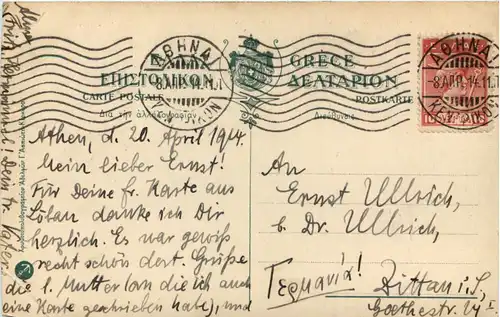 ΕΠΙΣΤΟΛΙΚΟΝ
CARTE POSTALE
Διὰ τὴν ἀλληλογραφίαν
GRÈCE
ΔΕΛΤΑΡΙΟΝ
POSTKARTE
Διεύθυνσις
ΑΘΗΝΑΙ
8.ΑΠΡ.14.11.
ΑΘΗΝΑΙ
8.ΑΠΡ.14.11.
10
Athen, d. 20. April 1914.
Mein lieber Ernst!
Für Deine fr. Karte aus
Löbau danke ich Dir
herzlich. Es war gewiß
recht schön dort. Grüße
die l. Mutter (an die ich auch
eine Karte geschrieben habe), und
Dein tr. Vater.
An
Ernst Ullrich,
b. Dr. Ullrich,
Γερμανία!
Zittau i. S.,
Goethestr.